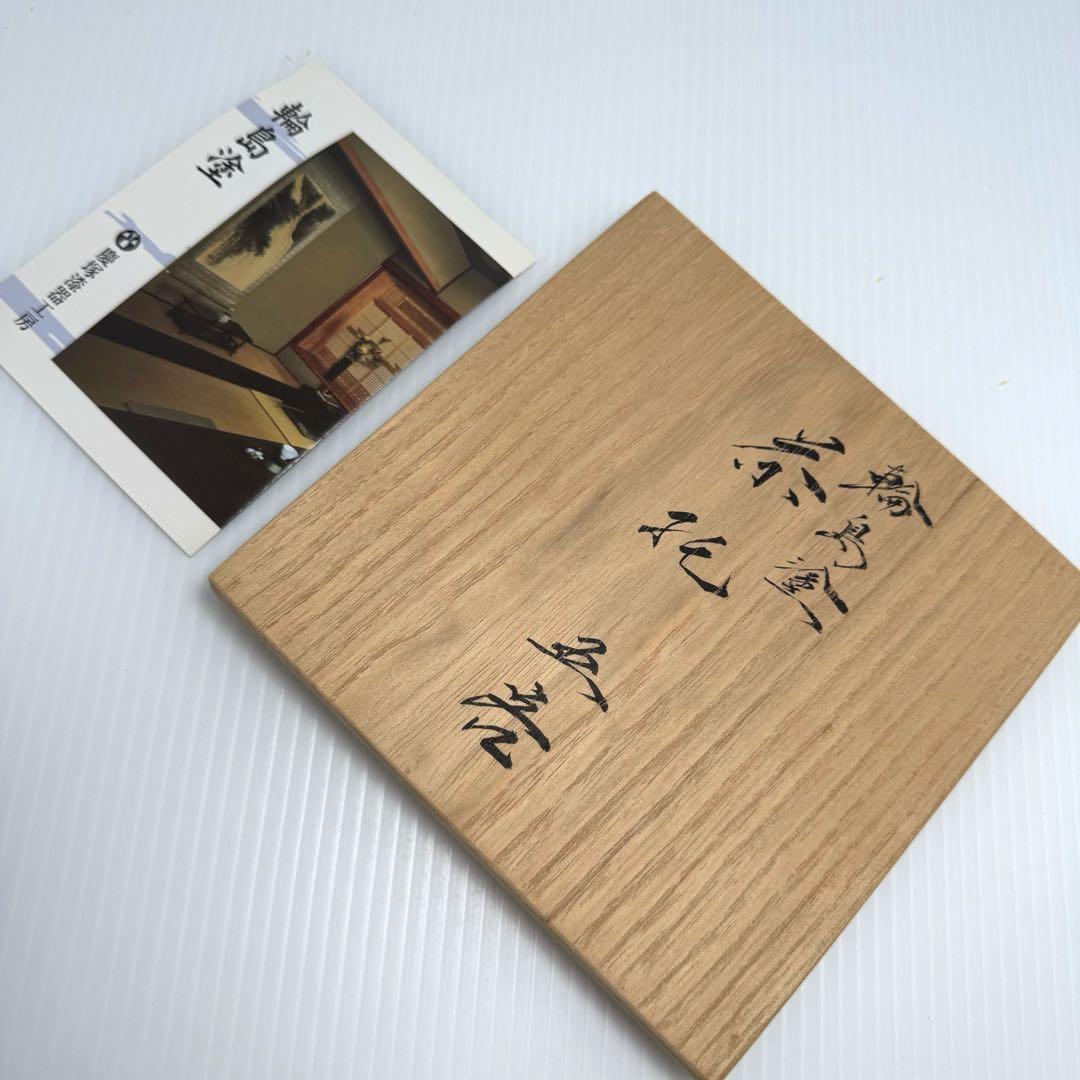 輪島塗
慶塚漆器工房
輪島塗
茶托
五客